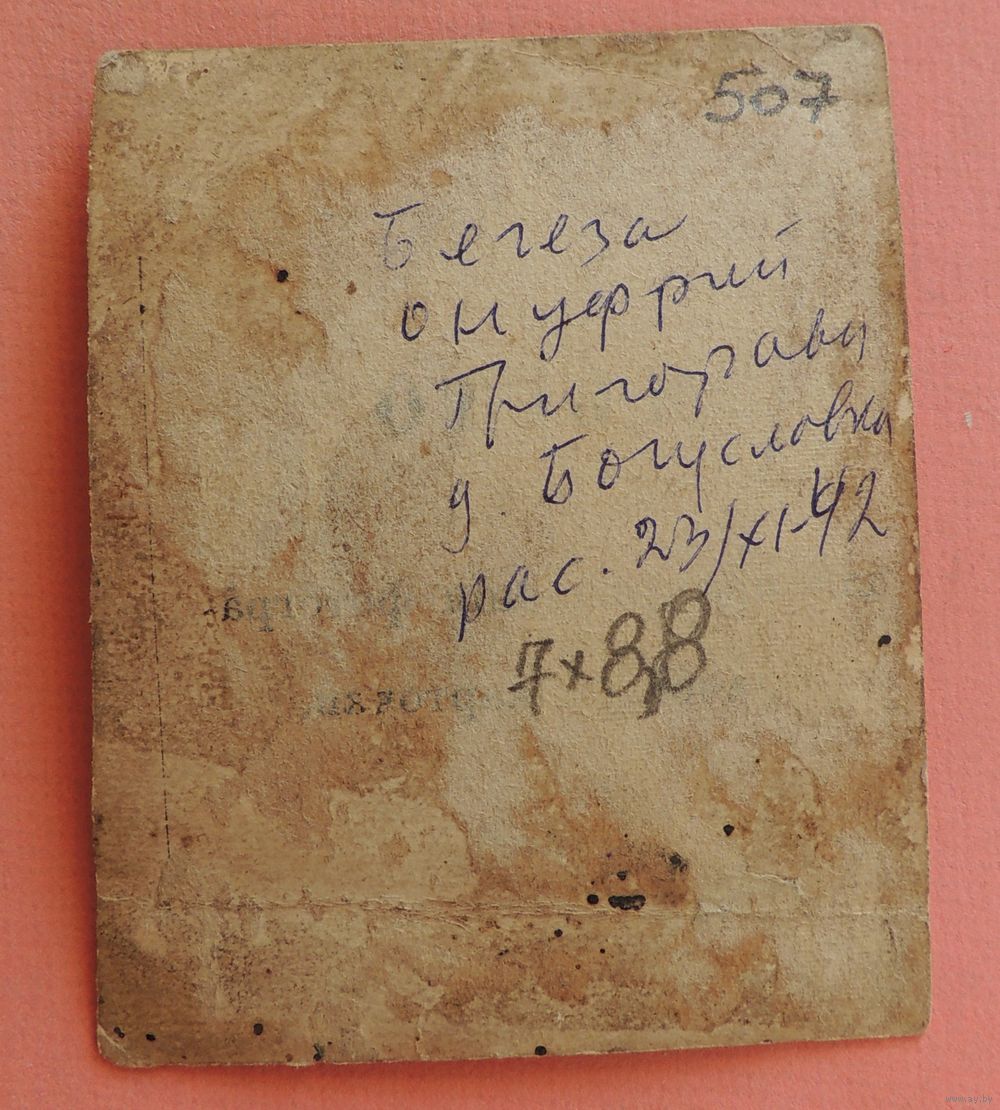 507
Бегеза
онуфрий
Григорави
д. Богусловка
рас. 23/XI-42
7×8,8
www.ay.by